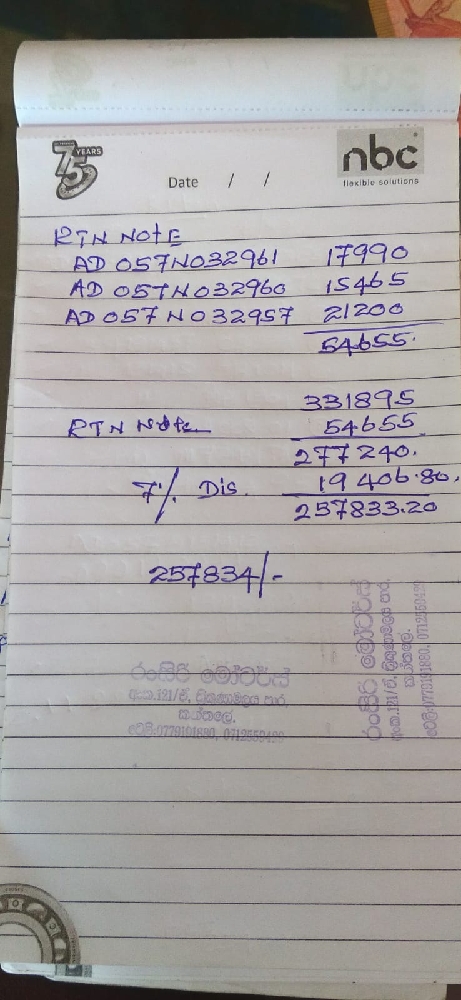 75 YEARS
nbc
flexible solutions
Date / /
RTN NOTE
AD 057N032961 17990
AD 057N032960 15465
AD 057N032957 21200
54655.
331895
RTN Note 54655
277240.
7% Dis. 19406.80.
257833.20
257834/-
රංසිරි මෝටර්ස්
අංක.121/ඒ, ත්‍රිකුණාමලය පාර,
කන්තලේ.
රංසිරි මෝටර්ස්
අංක.121/ඒ, ත්‍රිකුණාමලය පාර,
කන්තලේ.